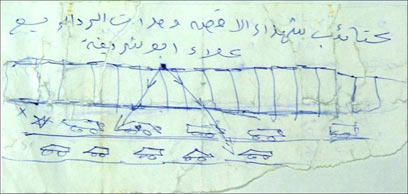 كتائب شهداء الاقصى وحدات الرداء سيع
علاء ابو شريفة